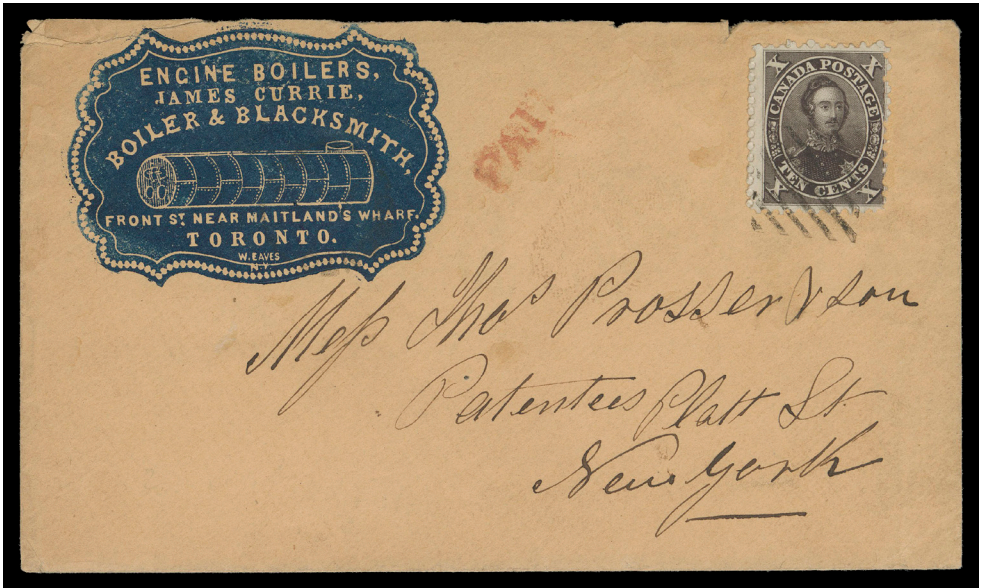 ENGINE BOILERS,
JAMES CURRIE,
BOILER & BLACKSMITH,
FRONT ST. NEAR MAITLAND'S WHARF.
TORONTO.
W. EAVES
N.Y.
PAID
X X
CANADA POSTAGE
TEN CENTS
X X
Mess Thos Prosser & Son
Patentees Platt St.
New York